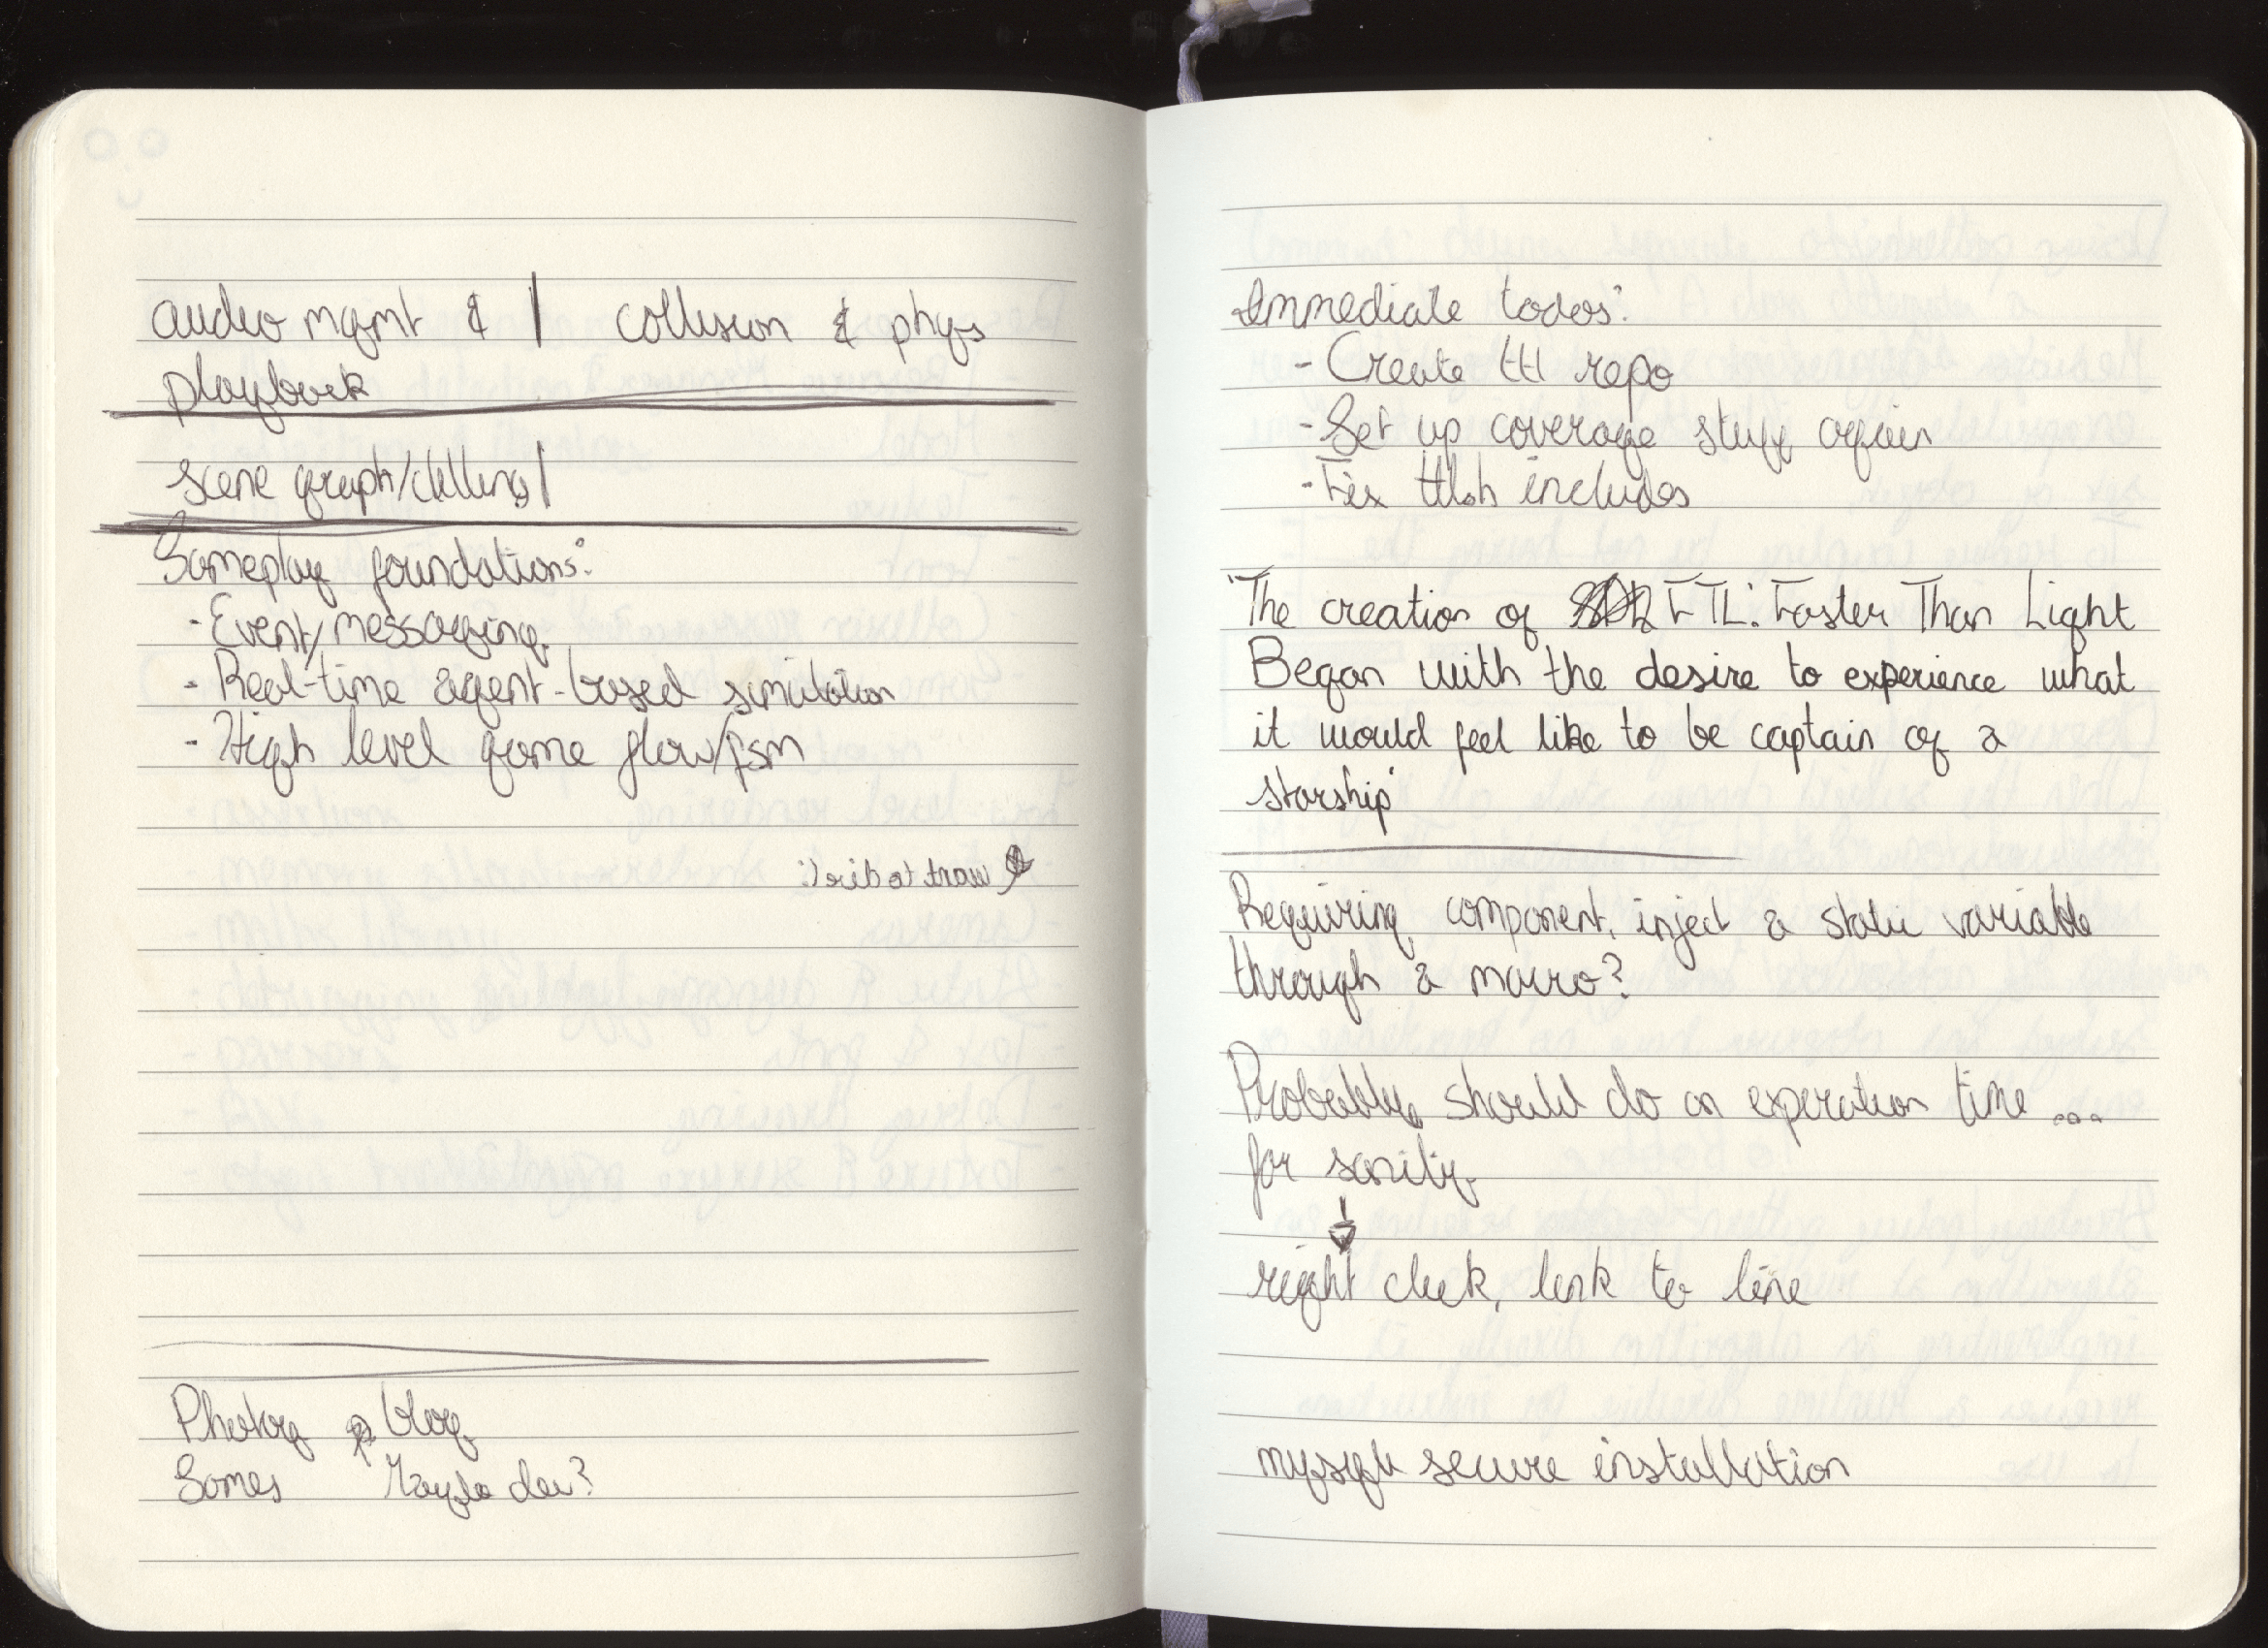 audio mgmt & | collision & phys
playback
scene graph/culling |
Gameplay foundations:
- Event/messaging
- Real-time agent-based simulation
- High level game flow/fsm
Photog blog
Games Maybe dev?
Immediate todos:
- Create ttl repo
- Set up coverage stuff again
- Fix includes
"The creation of FTL: Faster Than Light
Began with the desire to experience what
it would feel like to be captain of a
starship"
Requiring component, inject a static variable
through a macro?
Probably should do an experation time ...
for sanity.
right click, link to line
secure installation